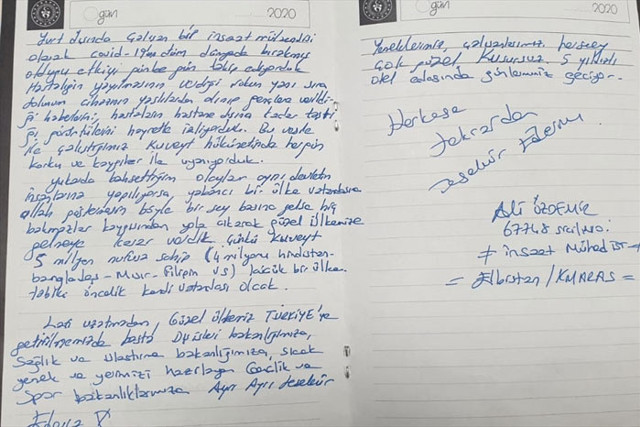 gün
2020
Yurt dışında çalışan bir inşaat mühendisi
olarak covid-19'un tüm dünyada bırakmış
olduğu etkiyi günbe gün takip ediyorduk
Hastalığın yayılmasının verdiği yanı sıra
solunum cihazının yaşlılardan alınıp gençlere verildi-
ği haberlerini, hastaların hastane dışına kadar taştı-
ğı görüntülerini hayretle izliyorduk. Bu vesile
ile çalıştığımız Kuveyt hükümetinde hergün
korku ve kayıplar ile uyanıyorduk.
Yukarda bahsettiğim olaylar aynı devletin
insanlarına yapılıyorsa yabancı bir ülke vatandaşına
allah göstermesin böyle bir şey başına gelse hiç
bakmazlar kaygısından yola çıkarak güzel ülkemize
gelmeye karar verdik. Çünkü Kuveyt
5 milyon nufusa sahip (4 milyonu hindistan-
bangladeş - Mısır - Filipin vs) küçük bir ülke.
tabiki öncelik kendi vatandaşı olacak.
Lafı uzatmadan Güzel ülkemiz TÜRKİYE'ye
getirilmemizde başta Dışişleri bakanlığımıza,
Sağlık ve ulaştırma bakanlığımıza, sıcak
yemek ve yerimizi hazırlayan Gençlik ve
Spor bakanlıklarımıza Ayrı Ayrı teşekkür
gün
2020
Yemeklerimiz, çalışanlarımız herşey
çok güzel kusursuz 5 yıldızlı
otel odasında günlerimiz geçiyor.
Herkese
tekrardan
teşekkür Ederim.
Ali ÖZDEMİR
67748 SİCİL NO.
≠ inşaat Mühendisi
= Elbistan / KMARAŞ =